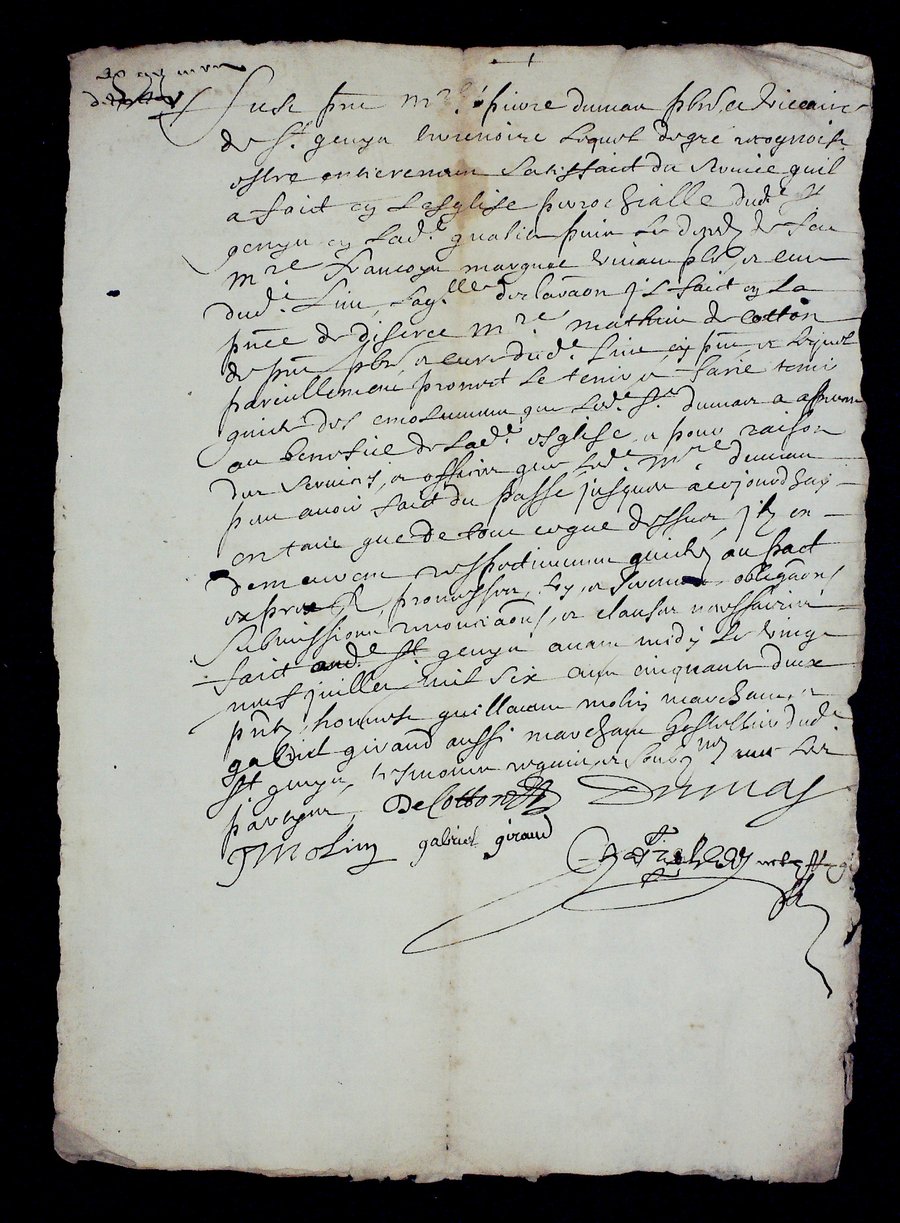 Fust pnt Mre pierre dumas pbre et viccaire
de St genyn lequel de gre recognoist
estre entierement satisfaict du service quil
a faict en lesglise parrochialle dudt St
genyn en ladte qualite puis le depces de feu
Mre Francoys marquet vivant pbre et cure
dudt lieu, laqlle declaraon jl faict en la
pnce de discret Mre mathieu de Cotton
de pnt pbre et cure dudt lieu, cy pnt et lequel
pareillement promet le tenir et faire tenir
quitte des emolumens que ledt Sr dumas a
au benefice de ladte esglise, et pour raison
des services, et offices que ledt Mre dumas
peut avoir faict du passe jusques a cejourdhuy
en tant que de tout ce que dessus jlz en
demeurent respectivement quictes au pact
expres, promesses, foy, et serment obligaons
submissions renonciaons, et clauses necessaires
faict audt St genyn avant midy le vingt
neuf juillet mil six cens cinquante deux
pntz honneste guillaume molin marchant et
gabriel giraud aussi marchant hostellier dudt
St genyn, tesmoins requis et soubz nes avec les
parties
De Cotton Dumas
Molin gabriel giraud